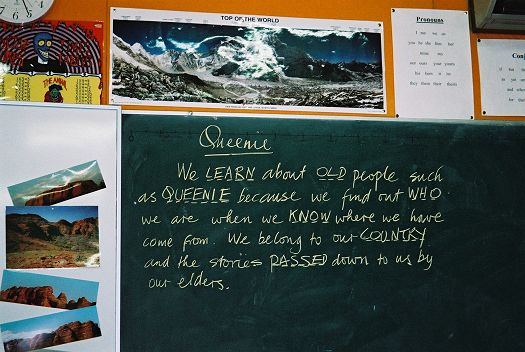 TOP OF THE WORLD
Pronouns
I me we us
you he she him her
mine my
our ours your yours
his hers it its
they them their theirs
Queenie
We LEARN about OLD people such
as QUEENIE because we find out WHO
we are when we KNOW where we have
come from. We belong to our COUNTRY
and the stories PASSED down to us by
our elders.